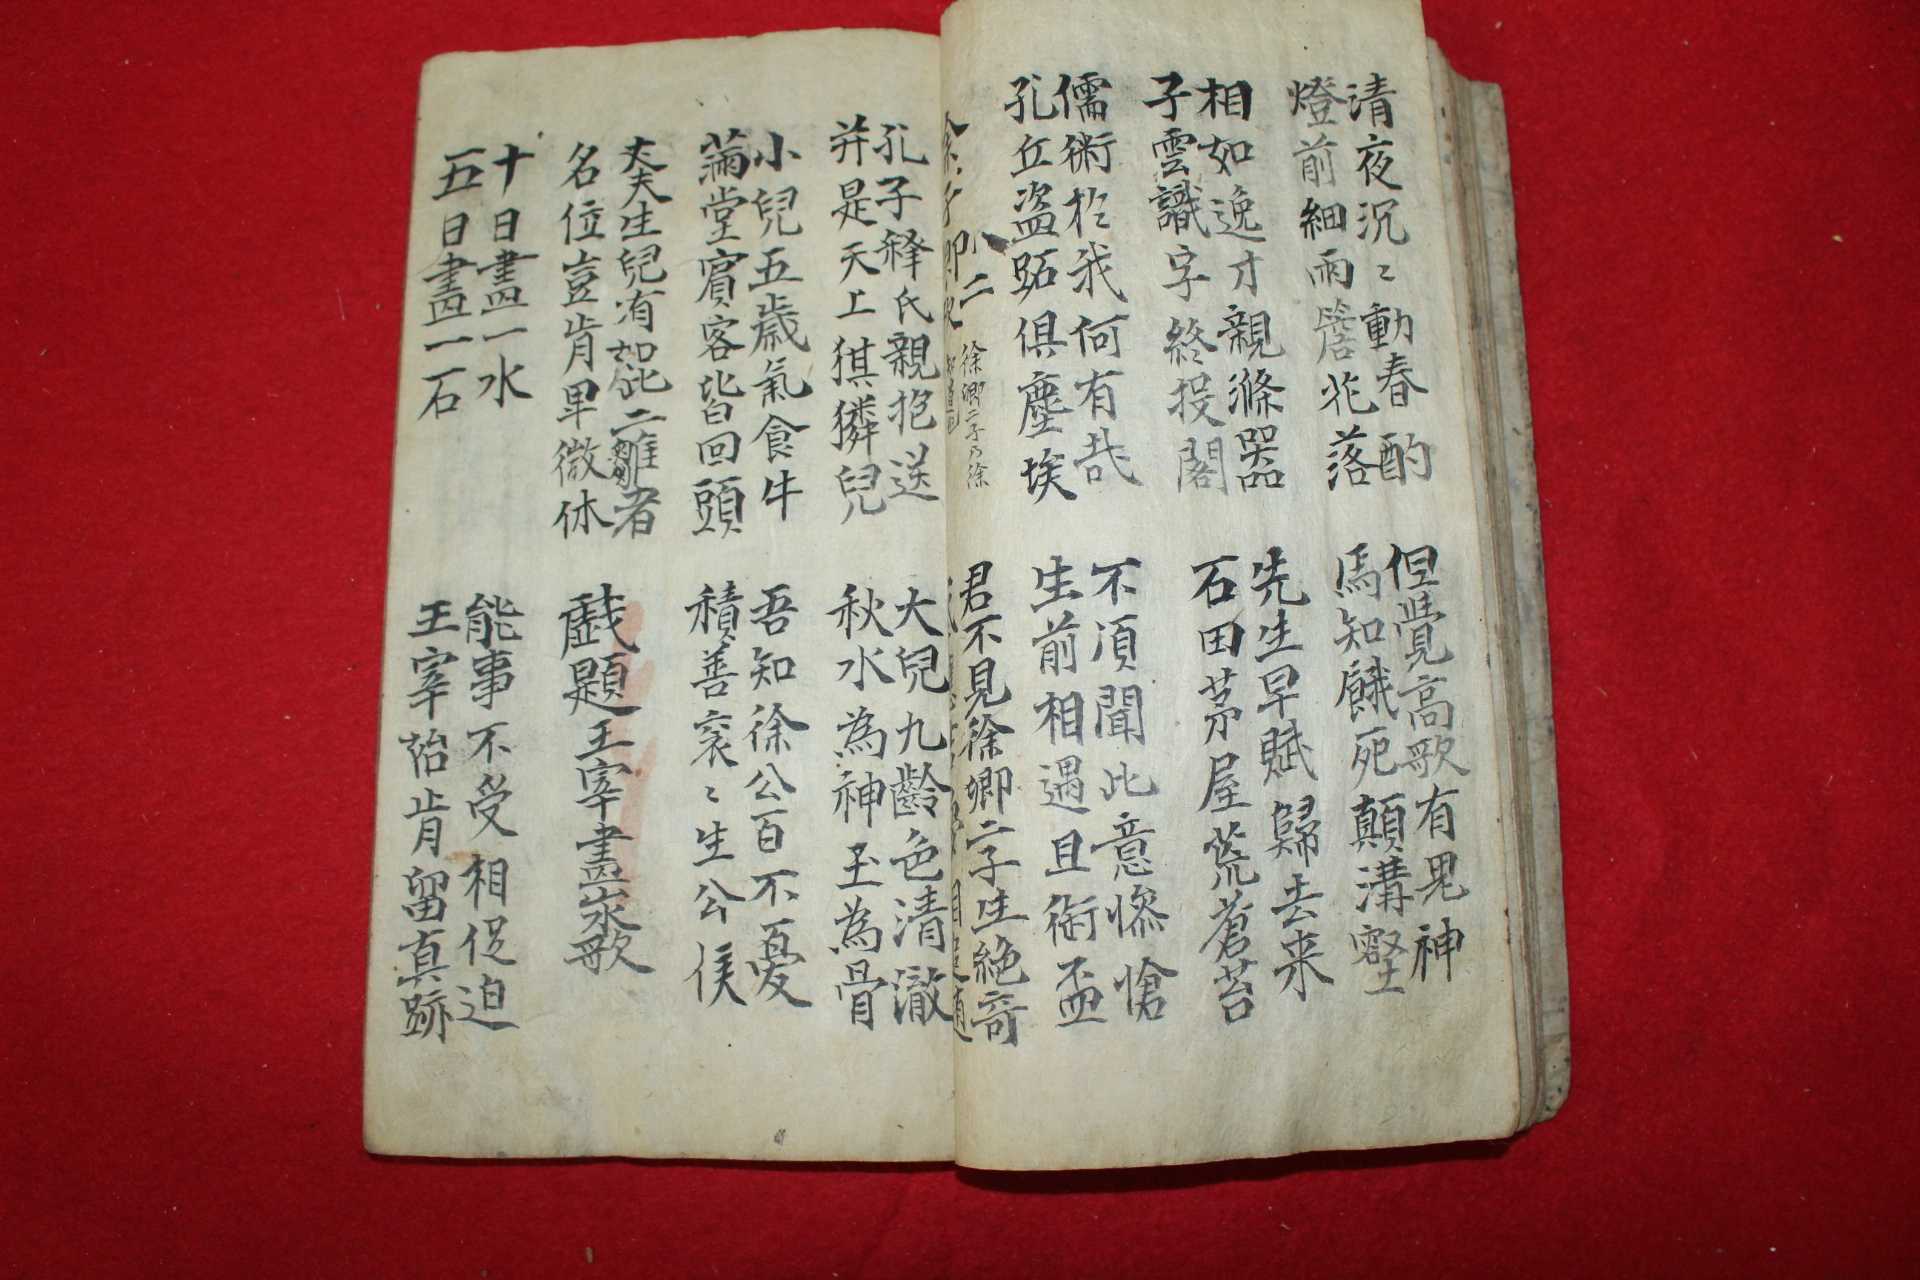 清夜沉〻動春酌
燈前細雨簷花落
但覺高歌有鬼神
焉知餓死顛溝壑
相如逸才親滌器
子雲識字終投閣
先生早賦歸去来
石田茅屋荒蒼苔
儒術於我何有哉
孔丘盜跖俱塵埃
不須聞此意慘愴
生前相遇且銜盃
徐卿二子乃徐
君不見徐卿二子生絶奇
孔子釋氏親抱送
并是天上猉獜兒
大兒九齡色清澈
秋水為神玉為骨
小兒五歲氣食牛
滿堂賓客皆回頭
吾知徐公百不憂
積善衮〻生公侯
丈夫生兒有如此二雛者
名位豈肯卑微休
戱題王宰畫山水歌
十日畫一水
五日畫一石
能事不受相促迫
王宰始肯留真跡